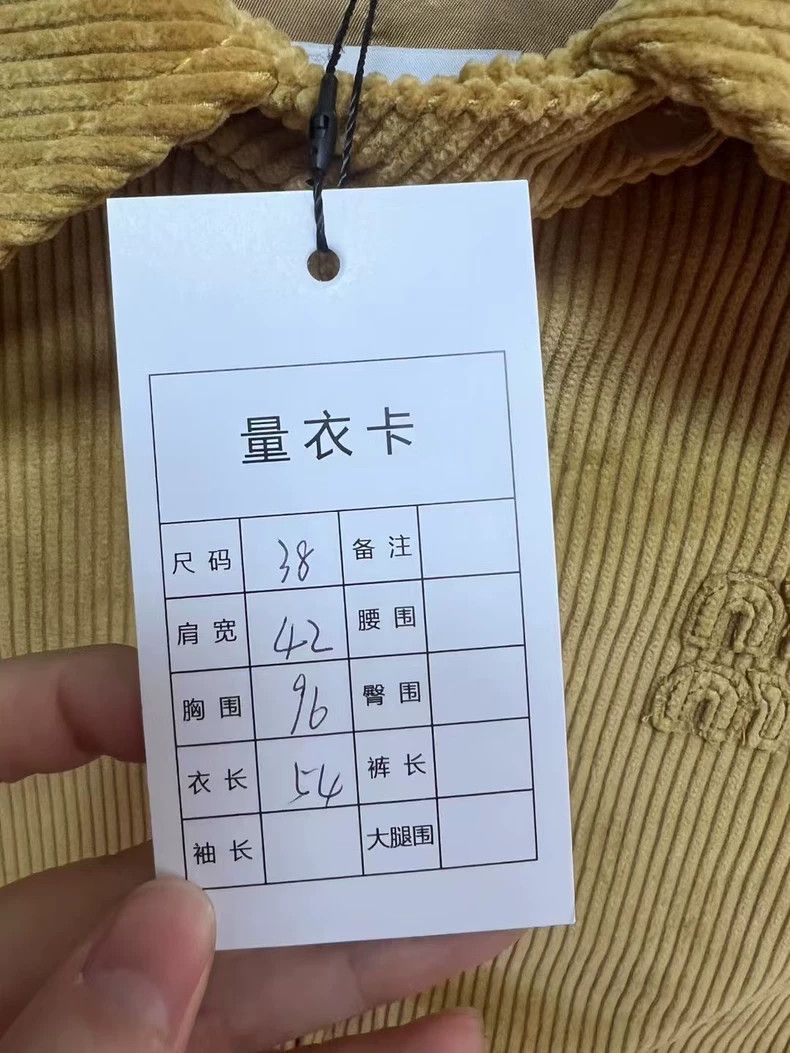 量衣卡
尺码 38 备注
肩宽 42 腰围
胸围 96 臀围
衣长 54 裤长
袖长 大腿围